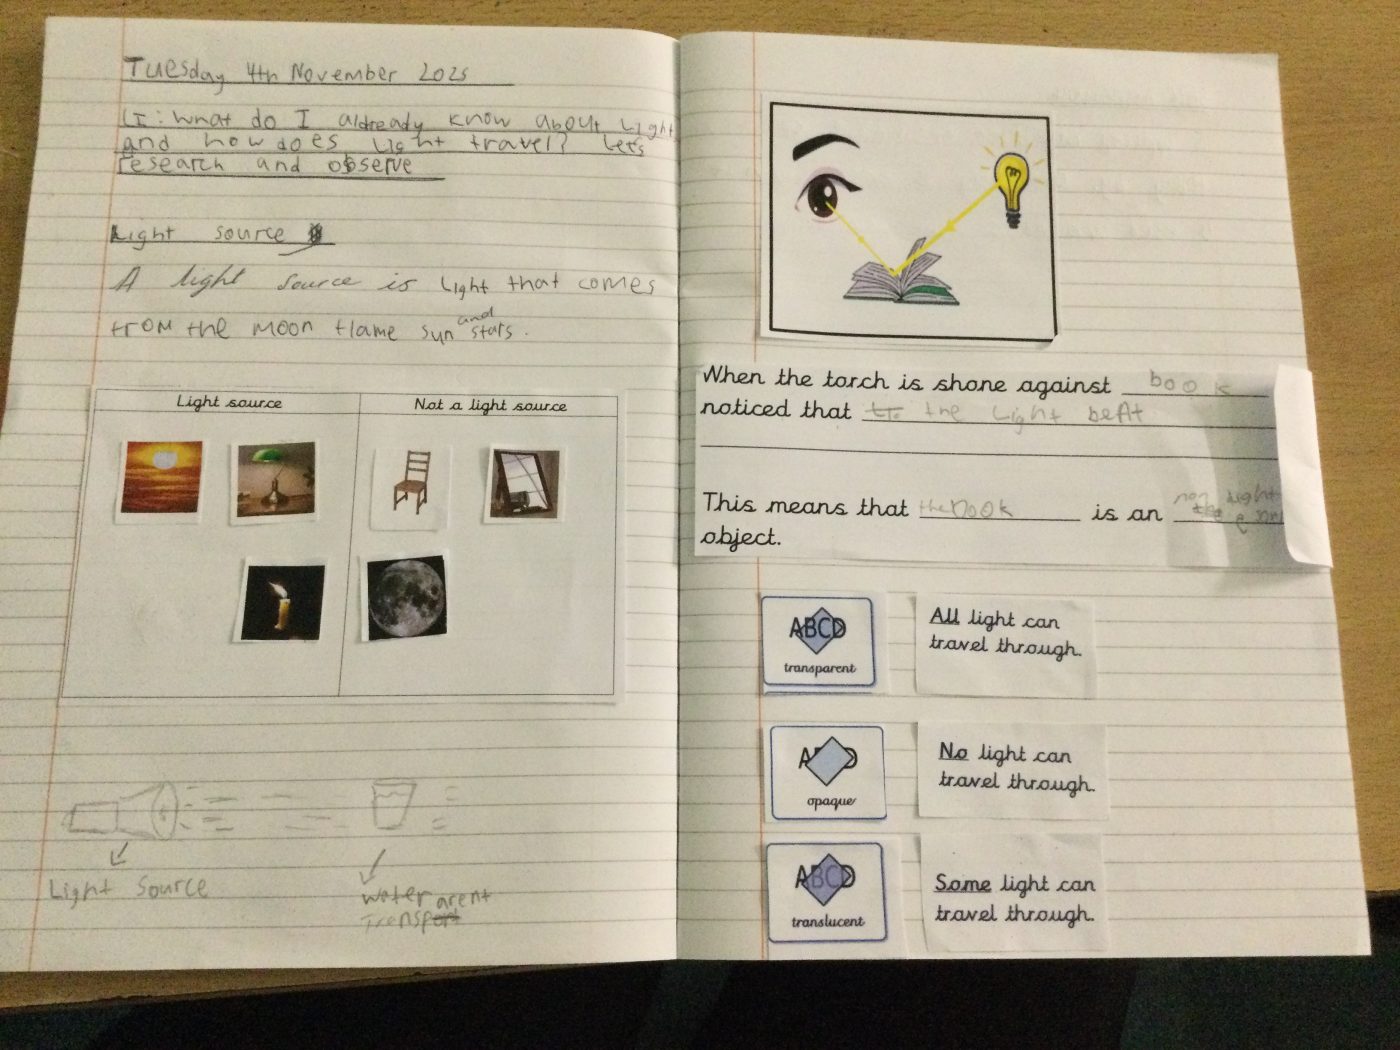 Tuesday 4th November 2025
LI: What do I aldready know about light
and how does light travel? Let's
research and observe
Light source
A light source is light that comes
from the moon flame sun and stars.
Light source
Not a light source
Light Source
water
Transparent
When the torch is shone against book
noticed that the light
This means that the book is an not light
object.
ABCD
transparent
All light can
travel through.
opaque
No light can
travel through.
ABCD
translucent
Some light can
travel through.